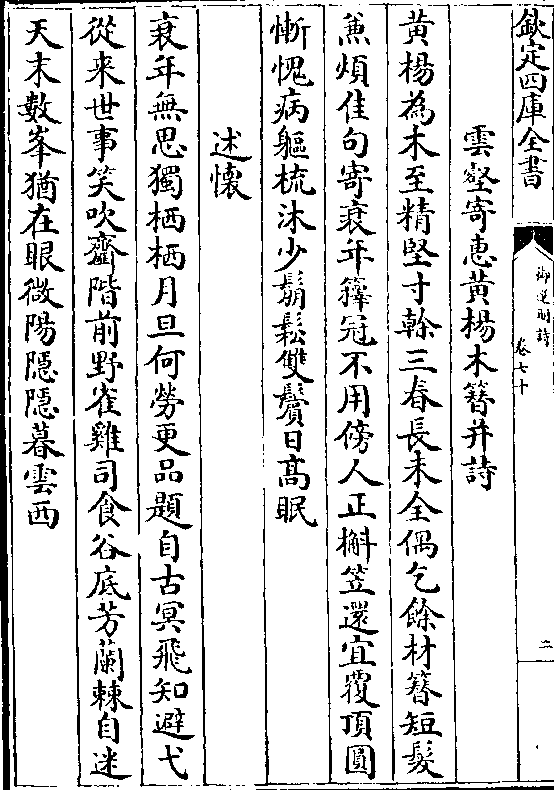 欽定四庫全書
御選明詩
卷七十
二
雲壑寄惠黃楊木簪并詩
黃楊為木至精堅寸榦三春長未全偶乞餘材簪短髮
兼煩佳句寄衰年籜冠不用傍人正槲笠還宜覆頂圓
慚愧病軀梳沐少鬅鬆雙鬢日高眠
述懷
衰年無思獨栖栖月旦何勞更品題自古冥飛知避弋
從来世事笑吹齏階前野雀雞司食谷底芳蘭棘自迷
天末數峯猶在眼微陽隱隱暮雲西